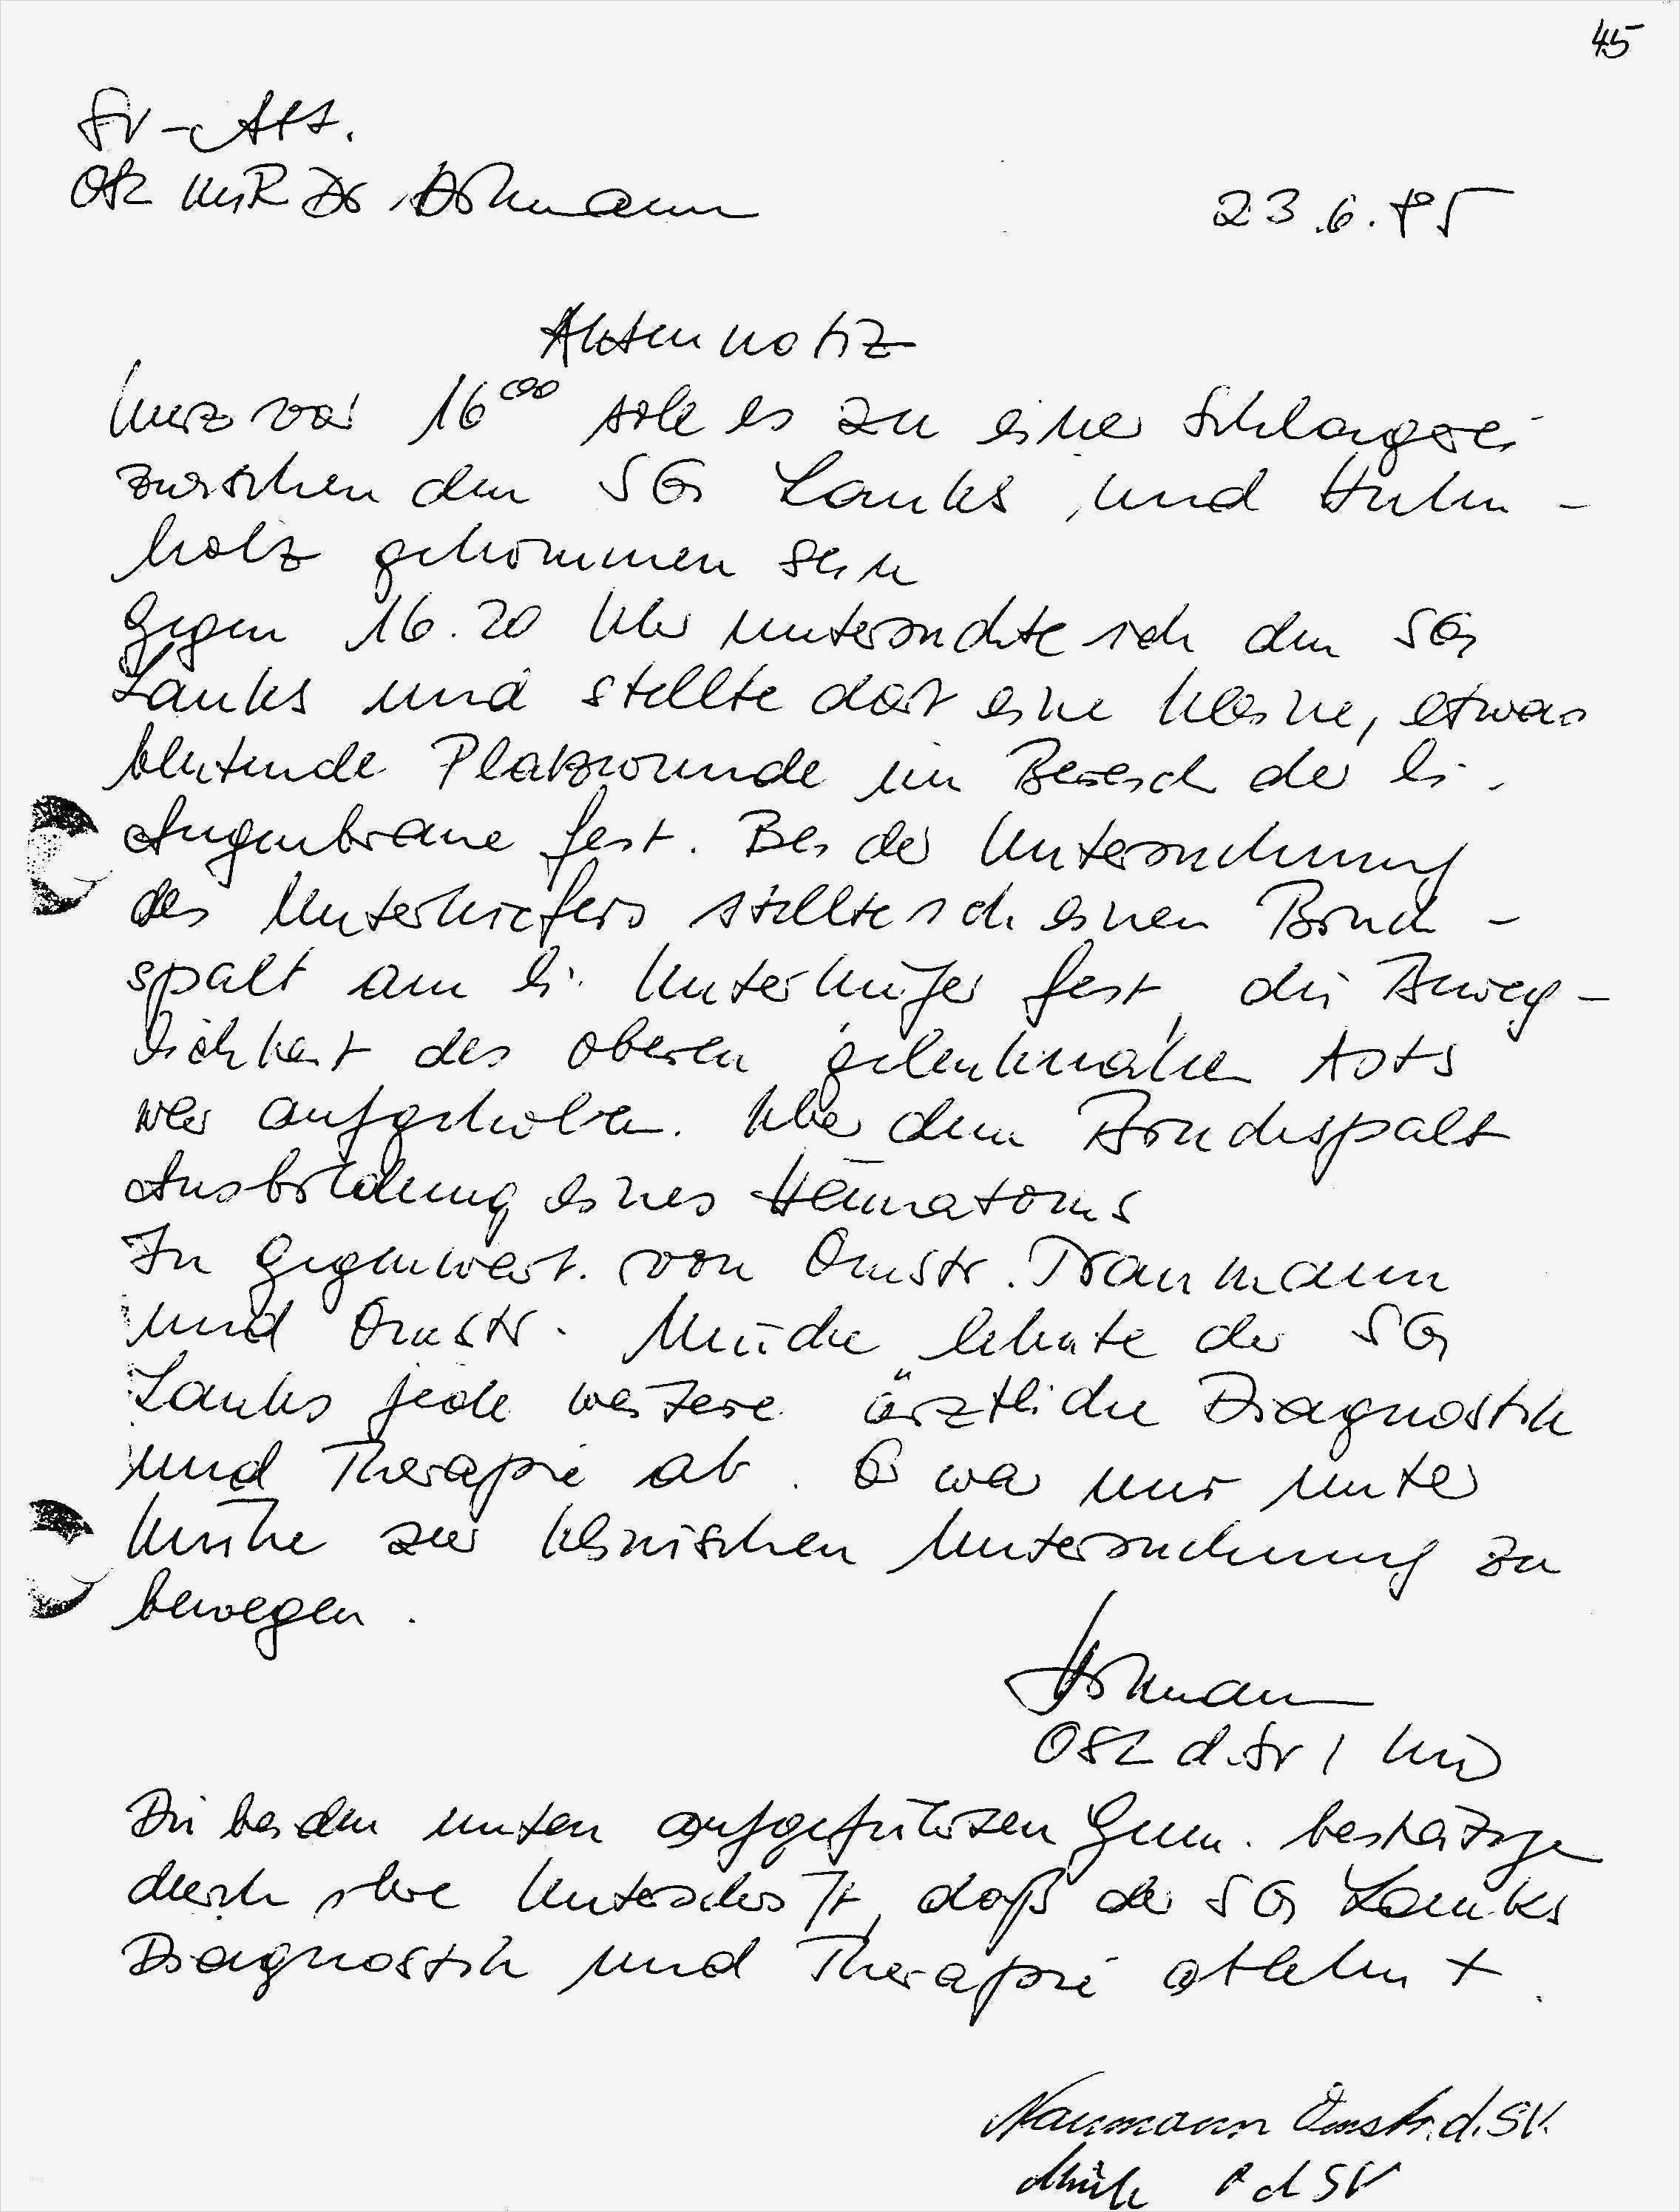 45
SV-Abt.
OSL MR Dr.
23.6.85
Aktennotiz
Kurz vor 16⁰⁰ soll es zu einer Schlägerei
zwischen den SG Lauks und Huhn-
holz gekommen sein
Gegen 16.20 Uhr untersuchte ich den SG
Lauks und stellte dort eine kleine, etwas
blutende Platzwunde im Bereich der li.
Augenbraue fest. Bei der Untersuchung
des Unterkiefers stellte ich einen Bruch-
spalt am li. Unterkiefer fest, die Beweg-
lichkeit des oberen gelenknahen Asts
war aufgehoben. Über dem Bruchspalt
Ausbildung eines Hämatoms
In Gegenwart von Omstr. Naumann
und Omstr. lehnte der SG
Lauks jede weitere ärztliche Diagnostik
und Therapie ab. Er war nur unter
Mühe zur klinischen Untersuchung zu
bewegen.
OSL d. SV /
Die beiden unten aufgeführten Gen. bestätigen
durch ihre Unterschrift, daß der SG Lauks
Diagnostik und Therapie ablehnt.
Naumann Omstr. d. SV.
d SV